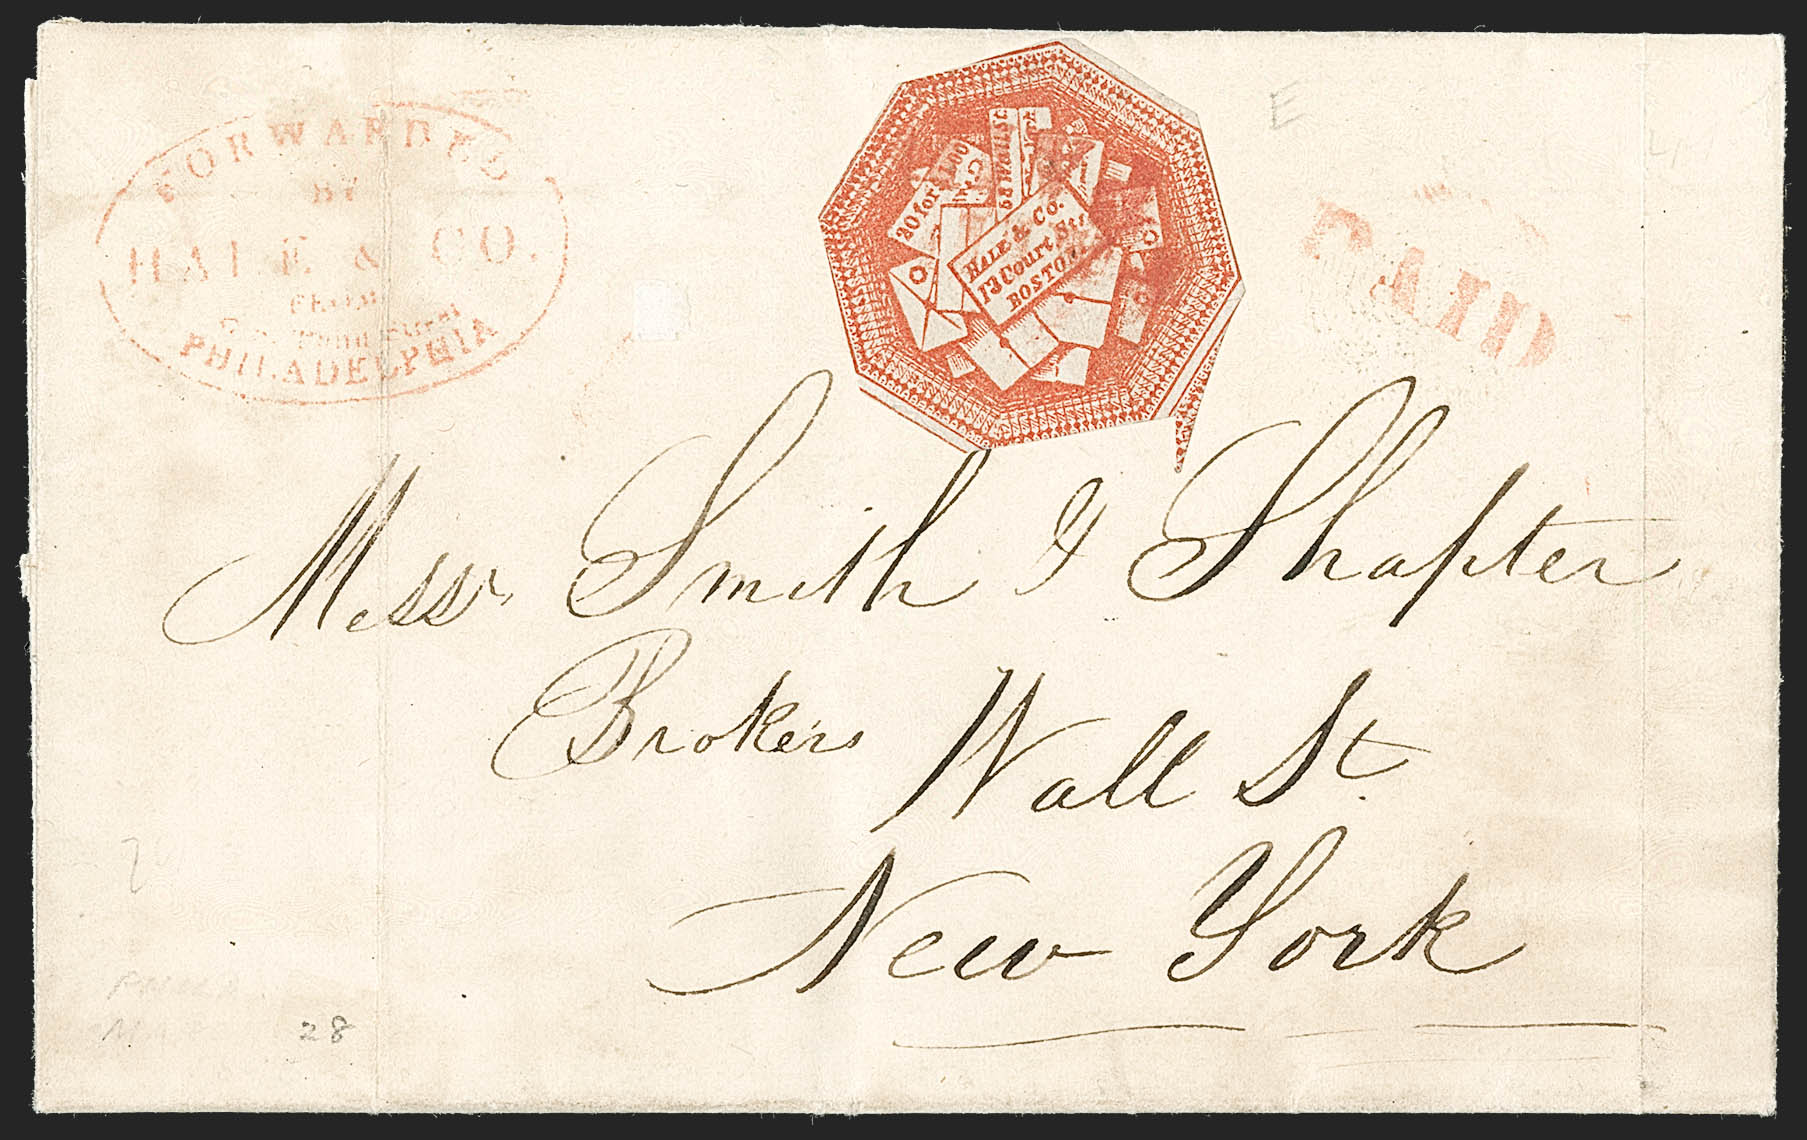 FORWARDED
BY
HALE & CO.
FROM
Street
PHILADELPHIA
20 for $1.00
68 Wall St
HALE & Co.
13 Court St.
BOSTON
E
PAID
Messrs Smith & Shapter
Brokers Wall St.
New York
PHILA
28